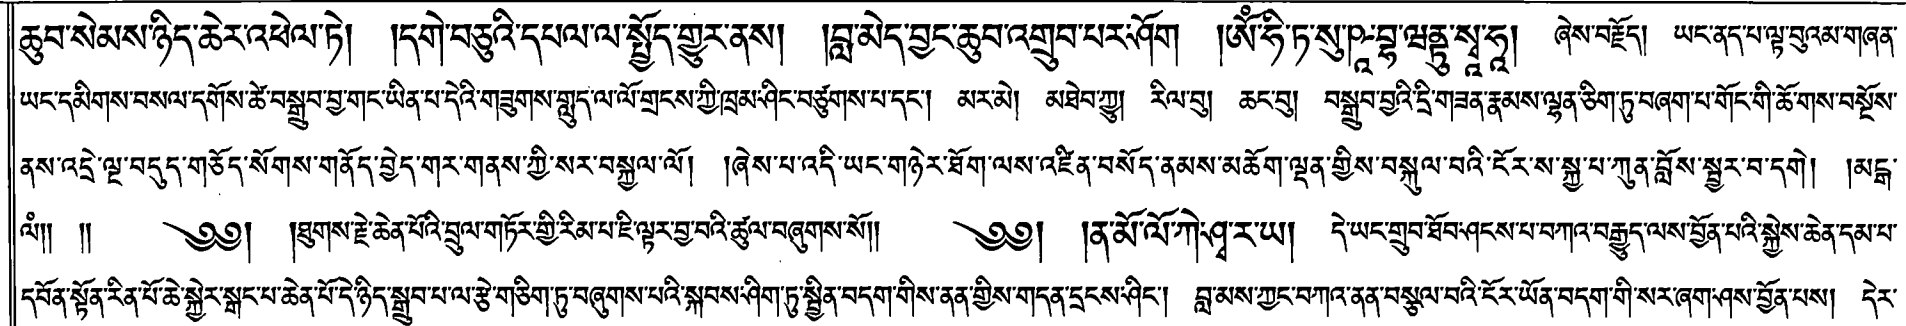 ཆུབ་སེམས་ཉིད་ཆེར་འཕེལ་ཏེ། །དགེ་བཅུའི་དཔལ་ལ་སྤྱོད་གྱུར་ནས། །བླ་མེད་བྱང་ཆུབ་འགྲུབ་པར་ཤོག །ཨོཾ་ཧི་ཏ་སུ་ ཞེས་བརྗོད། ཡང་ནད་པ་ལྟ་བུའམ་གཞན་
ཡང་དམིགས་བསལ་དགོས་ཚེ་བསྒྲུབ་བྱ་གང་ཡིན་པ་དེའི་གཟུགས་གླུད་ལ་ལོ་གྲངས་ཀྱི་ཁྲམ་ཤིང་བཙུགས་པ་དང་། མར་མེ། མཐེབ་ཀྱུ། རིལ་བུ། ཆང་བུ། བསྒྲུབ་བྱའི་དྲི་གཟན་རྣམས་ལྷན་ཅིག་ཏུ་བཞག་པ་གོང་གི་ཆོ་གས་བསྔོས་
ནས་འདྲེ་ལྔ་བདུད་གཅོད་སོགས་གནོད་བྱེད་གར་གནས་ཀྱི་སར་བསྐྱལ་ལོ། །ཞེས་པ་འདི་ཡང་གཉེར་ཐོག་ལས་འཛིན་བསོད་ནམས་མཆོག་ལྡན་གྱིས་བསྐུལ་བའི་ངོར་ས་སྐྱ་པ་ཀུན་བློས་སྦྱར་བ་དགེ། །མངྒ་
ལཾ།། །། ༄༅། །ཐུགས་རྗེ་ཆེན་པོའི་བྲུལ་གཏོར་གྱི་རིམ་པ་ཇི་ལྟར་བྱ་བའི་ཚུལ་བཞུགས་སོ།། ༄༅། །ན་མོ་ལོ་ཀེ་ཤྭ་ར་ཡ། དེ་ཡང་གྲུབ་ཐོབ་ཤངས་པ་བཀའ་བརྒྱུད་ལས་བྱོན་པའི་སྐྱེས་ཆེན་དམ་པ་
དཔོན་སྟོན་རིན་པོ་ཆེ་སྐྱེར་སྒང་པ་ཆེན་པོ་དེ་ཉིད་སྒྲུབ་པ་ལ་རྩེ་གཅིག་ཏུ་བཞུགས་པའི་སྐབས་ཤིག་ཏུ་སྦྱིན་བདག་གིས་ནན་གྱིས་གདན་དྲངས་ཤིང་། བླ་མས་ཀྱང་བཀའ་ནན་བསྩལ་བའི་ངོར་ཡོན་བདག་གི་སར་ཞག་ཤས་བྱོན་པས། དེར་